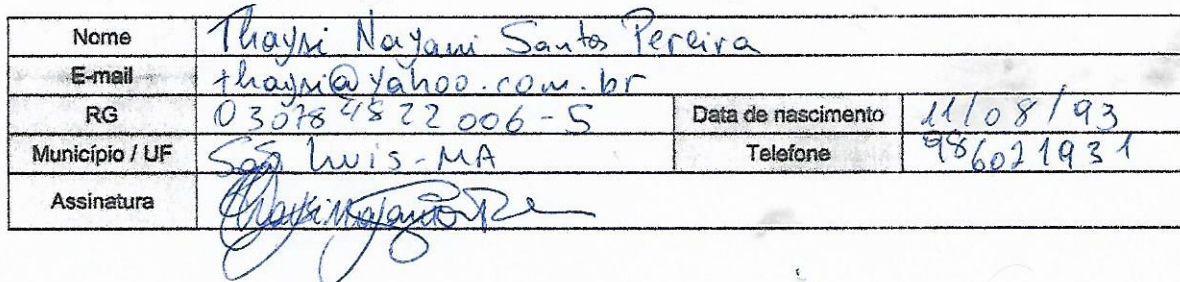 Nome Thaysi Nayani Santos Pereira
E-mail thaysi@yahoo.com.br
RG 030784822006-5 Data de nascimento 11/08/93
Município / UF São Luis-MA Telefone 986021931
Assinatura